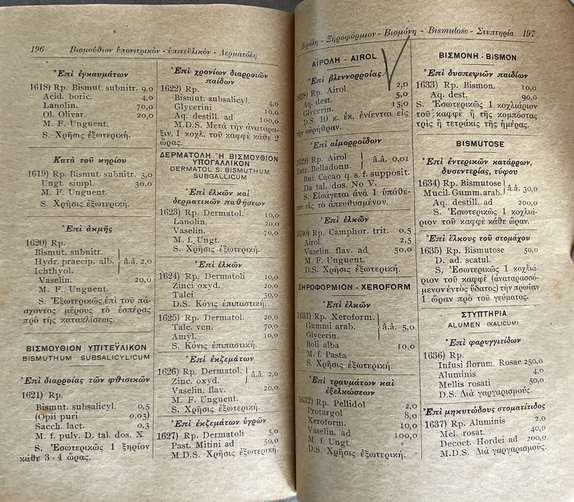 196 Βισμούθιον ὑπονιτρικόν - ὑπιτεϋλικόν - Δερματόλη
Ἐπὶ ἐγκαυμάτων
1618) Rp. Bismut. subnitr. 9,0
Acid. boric. 4,0
Lanolin. 70,0
Ol. Olivar. 20,0
M. F. Unguent.
S. Χρῆσις ἐξωτερική.
Κατὰ τοῦ κηρίου
1619) Rp. Bismut. subnitr. 3,0
Ungt. simpl. 30,0
M. F. Unguent
S. Χρῆσις ἐξωτερική.
Ἐπὶ ἀκμῆς
1620) Rp.
Bismut. subnitr.
Hydr. praecip. alb. ἄ.ἄ. 2,0
Ichthyol.
Vaselin. 20,0
M. F. Unguent.
S. Ἐξωτερικῶς.ἐπὶ τοῦ πά-
σχοντος μέρους τὸ ἑσπέρας
πρὸ τῆς κατακλίσεως.
ΒΙΣΜΟΥΘΙΟΝ ΥΠΙΤΕΫΛΙΚΟΝ
BISMUTHUM SUBSALICYLICUM
Ἐπὶ διαρροίας τῶν φθισικῶν
1621) Rp.
Bismut. subsalicyl. 0,5
(Opii puri 0,03)
Sacch. lact. 0,3
M. f. pulv. D. tal. dos. X
S. Ἐσωτερικῶς 1 ξηρίον
κάθε 3 - 4 ὥρας.
Ἐπὶ χρονίων διαρροιῶν
παίδων
1622) Rp.
Bismut. subsalicyl. 4,0
Glycerin. 10,0
Aq. destill. ad 100,0
M.D.S. Μετὰ τὴν ἀνατάρα-
ξιν, 1 κοχλ. τοῦ καφφὲ κάθε 2
ὥρας.
ΔΕΡΜΑΤΟΛΗ Ἢ ΒΙΣΜΟΥΘΙΟΝ
ΥΠΟΓΑΛΛΙΚΟΝ
DERMATOL S. BISMUTHUM
SUBGALLICUM
Ἐπὶ ἑλκῶν καὶ
δερματικῶν παθήσεων
1623) Rp. Dermatol. 10,0
Lanolin. 20,0
Vaselin. 70,0
M. f. Ungt.
S. Χρῆσις ἐξωτερική.
Ἐπὶ ἑλκῶν
1624) Rp. Dermatoli 10,0
Zinci oxyd. 20,0
Talci 30,0
D.S. Κόνις ἐπιπαστική.
1625) Rp. Dermatol. 20,0
Talc. ven. 70,0
Amyl. 10,0
S. Κόνις ἐπιπαστική.
Ἐπὶ ἐκζεμάτων
1626) Rp. Dermatol. ἄ.ἄ. 2,0
Zinc. oxyd.
Vaselin. flav. 20,0
M. F. Unguent.
S. Χρῆσις ἐξωτερική.
Ἐπὶ ἐκζεμάτων ὑγρῶν
1627) Rp. Dermatoli 5,0
Past. Mitini ad 50,0
M.D.S. Χρῆσις ἐξωτερική.
Αἰρόλη - Ξηροφόρμιον - Βισμόνη - Bismutose - Στυπτηρία 197
ΑΙΡΟΛΗ - AIROL
Ἐπὶ βλεννορροίας
Rp. Airol. 2,0
Aq. dest. 5,0
Glycerin. 15,0
D.S. 10 κ. ἑκ. ἐνίεται εἰς
οὐρήθραν.
Ἐπὶ αἱμορροΐδων
Rp. Airol. ἄ.ἄ. 0,01
Extr. Belladonn.
But. Cacao q. s. f. supposit.
Da tal. dos. No V.
S. Εἰσάγεται ἀνὰ 1 ὑπόθε-
εἰς τὸ ἀπευθυσμένον.
Ἐπὶ ἑλκῶν
Rp. Camphor. trit. 0,5
Airol. 2,5
Vaselin. flav. ad 50,0
M. F. Unguent.
D.S. Χρῆσις ἐξωτερική.
ΞΗΡΟΦΟΡΜΙΟΝ - XEROFORM
Ἐπὶ ἑλκῶν
1631) Rp. Xeroform.
Gummi arab. ἄ.ἄ. 5,0
Glycerin.
Boli alba 10,0
M. f. Pasta
S. Χρῆσις ἐξωτερική.
Ἐπὶ τραυμάτων καὶ
ἐξελκώσεων
1632) Rp. Pellidol 2,0
Protargol 8,0
Xeroform. 10,0
Vaselin. ad 100,0
M. f. Ungt.
D.S. Χρῆσις ἐξωτερική.
ΒΙΣΜΟΝΗ - BISMON
Ἐπὶ δυσπεψιῶν παιδίων
1633) Rp. Bismon. 10,0
Aq. dest. 90,0
S. Ἐσωτερικῶς 1 κοχλιάριον
τοῦ καφφὲ ἢ τῆς κομπόστας
τρὶς ἢ τετράκις τῆς ἡμέρας.
BISMUTOSE
Ἐπὶ ἐντερικῶν κατάρρων,
δυσεντερίας, τύφου
1634) Rp. Bismutose ἄ.ἄ. 30,0
Mucil. Gumm. arab.
Aq. destill. ad 200,0
S. Ἐσωτερικῶς 1 κοχλιά-
ριον τοῦ καφφὲ κάθε ὥραν.
Ἐπὶ ἕλκους τοῦ στομάχου
1635) Rp. Bismutose 50,0
D. ad. scatul.
S. Ἐσωτερικῶς 1 κοχλιά-
ριον τοῦ καφφὲ (ἀναταρασσό-
μενον ἐντὸς ὕδατος) τὴν πρωίαν
1 ὥραν πρὸ τοῦ γεύματος.
ΣΤΥΠΤΗΡΙΑ
ALUMEN (KALICUM)
Ἐπὶ φαρυγγίτιδων
1636) Rp.
Infusi florum. Rosae 250,0
Aluminis 4,0
Mellis rosati 50,0
D.S. Διὰ γαργαρισμούς.
Ἐπὶ μηκυτώδους στοματίτιδος
1637) Rp. Aluminis 2,0
Mel. rosat. 40,0
Decoct. Hordei ad 200,0
M.D.S. Διὰ γαργαρισμούς.